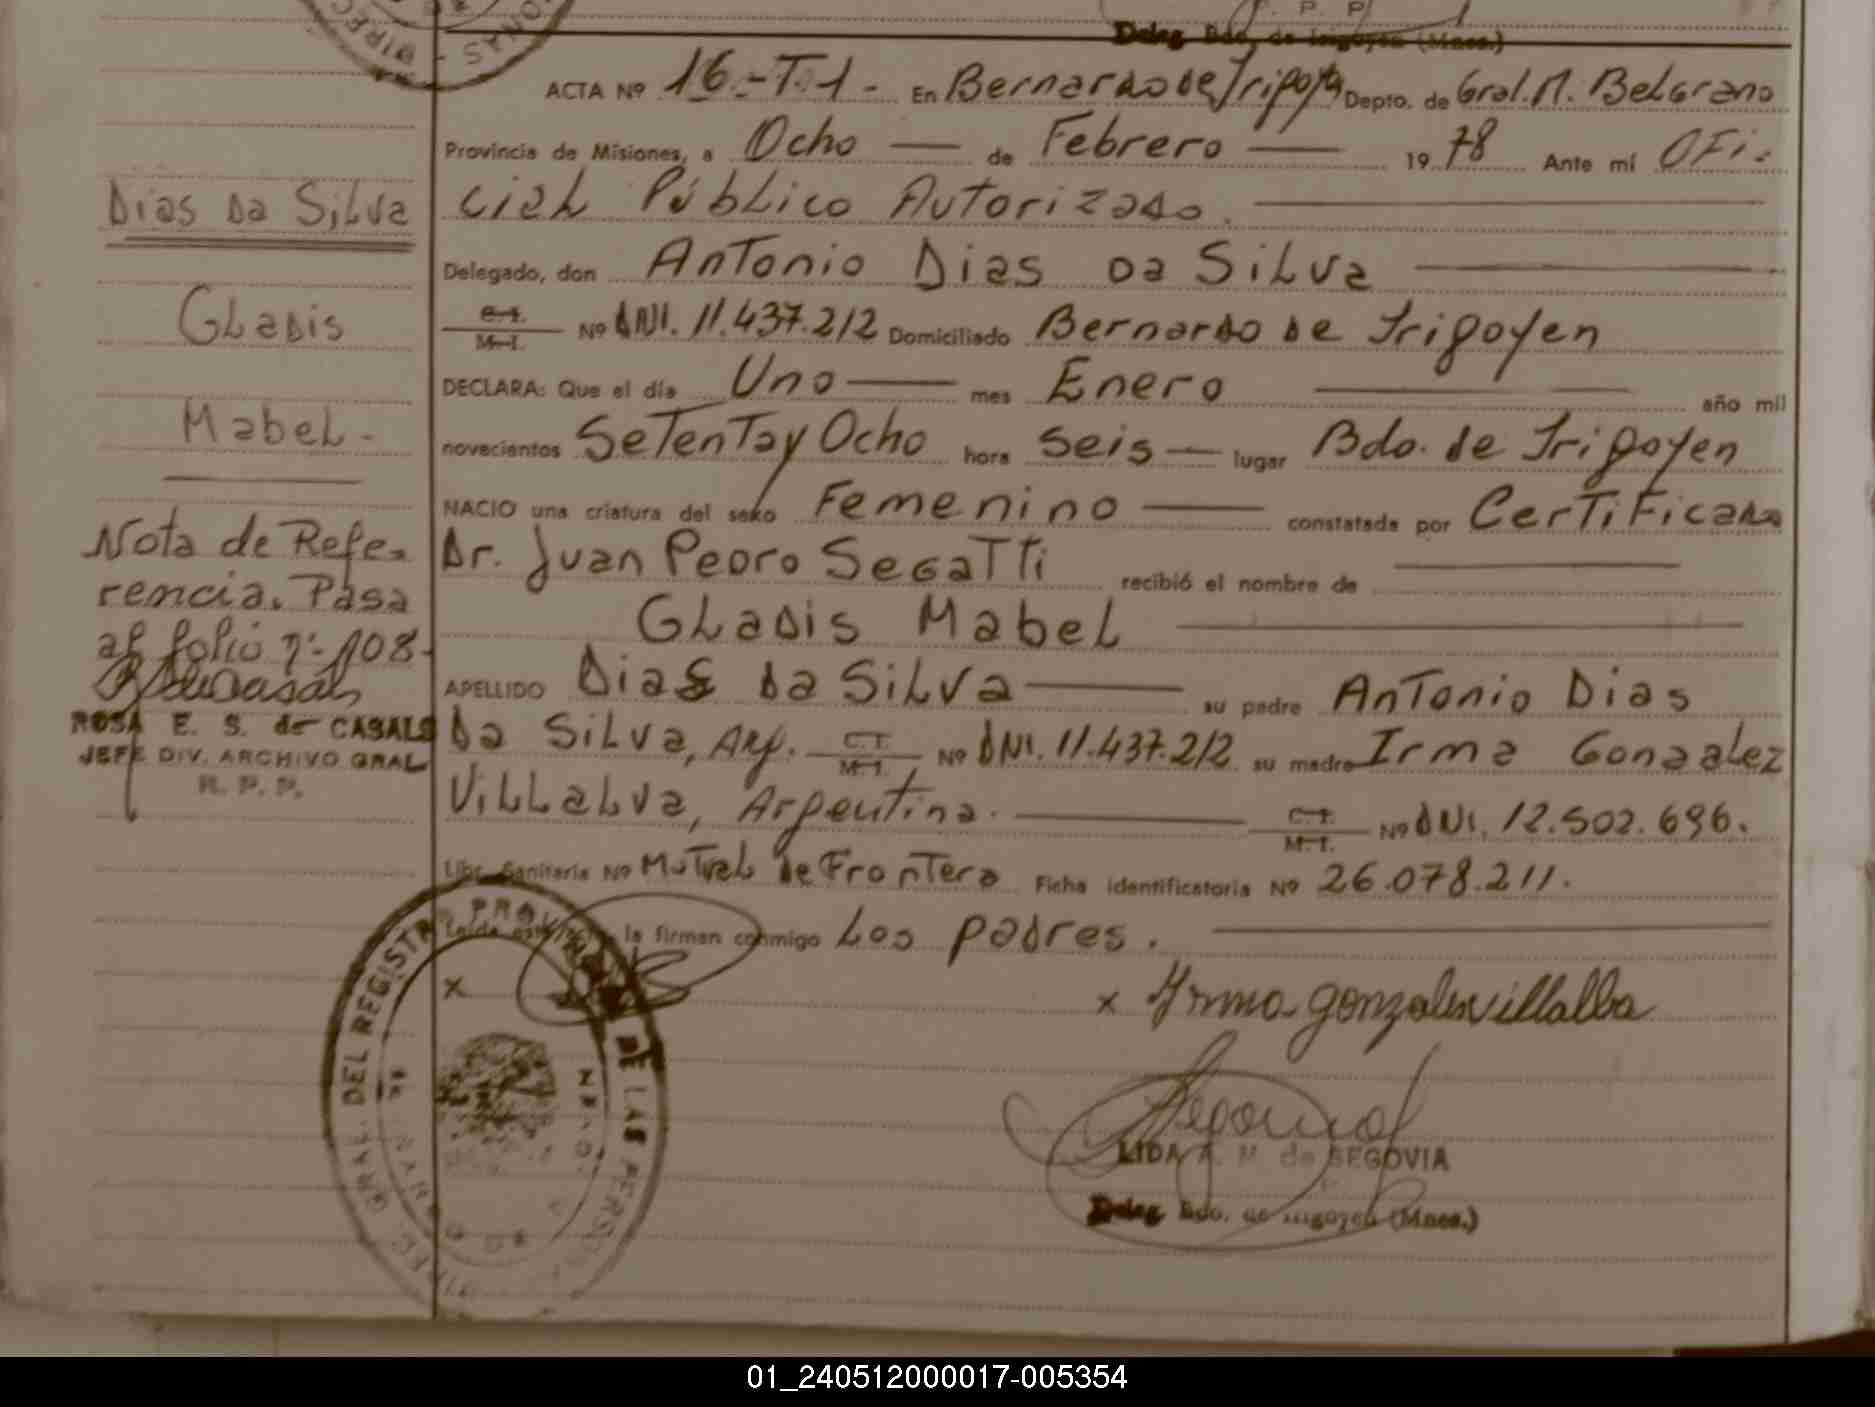 DIREC
ONAS -
P. P.
Deleg Bdo. de Irigoyen (Mnes.)
ACTA Nº 16.-T.1- En Bernardo de Irigoyen Depto. de Gral. M. Belgrano
Provincia de Misiones, a Ocho — de Febrero — 1978 Ante mí OFi-
ciaL PúbLico AuTorizado.
Delegado, don AnTonio Dias Da SiLva
C.I. M.I. Nº DNI. 11.437.212 Domiciliado Bernardo de Irigoyen
DECLARA: Que el día Uno — mes Enero — año mil
novecientos SeTenTa y Ocho hora Seis — lugar Bdo. de Irigoyen
NACIO una criatura del sexo Femenino — constatada por CerTiFicado
Dr. Juan Pedro SegaTTi recibió el nombre de
GLadis MabeL
APELLIDO Dias Da SiLva — su padre AnTonio Dias
Da SiLva, Arg. C.I. M.I. Nº DNI. 11.437.212 su madre Irma Gonzalez
ViLLaLva, Argentina. — C.I. M.I. Nº DNI. 12.502.696.
Libr. Sanitaria Nº MuTuaL de FronTera Ficha identificatoria Nº 26.078.211.
Leída esta la firman conmigo Los padres.
x
x Yrma gonzales villalba
Segovia
LIDA A. M. de SEGOVIA
Deleg Bdo. de Irigoyen (Mnes.)
Dias Da SiLva
GLadis
MabeL -
Nota de Refe-
rencia. Pasa
al folio nº 108.
ROSA E. S. de CASALS
JEFE DIV. ARCHIVO GRAL
R. P. P.
DIREC. GRAL. DEL REGISTR PROV DE LAS PERSO
01_240512000017-005354